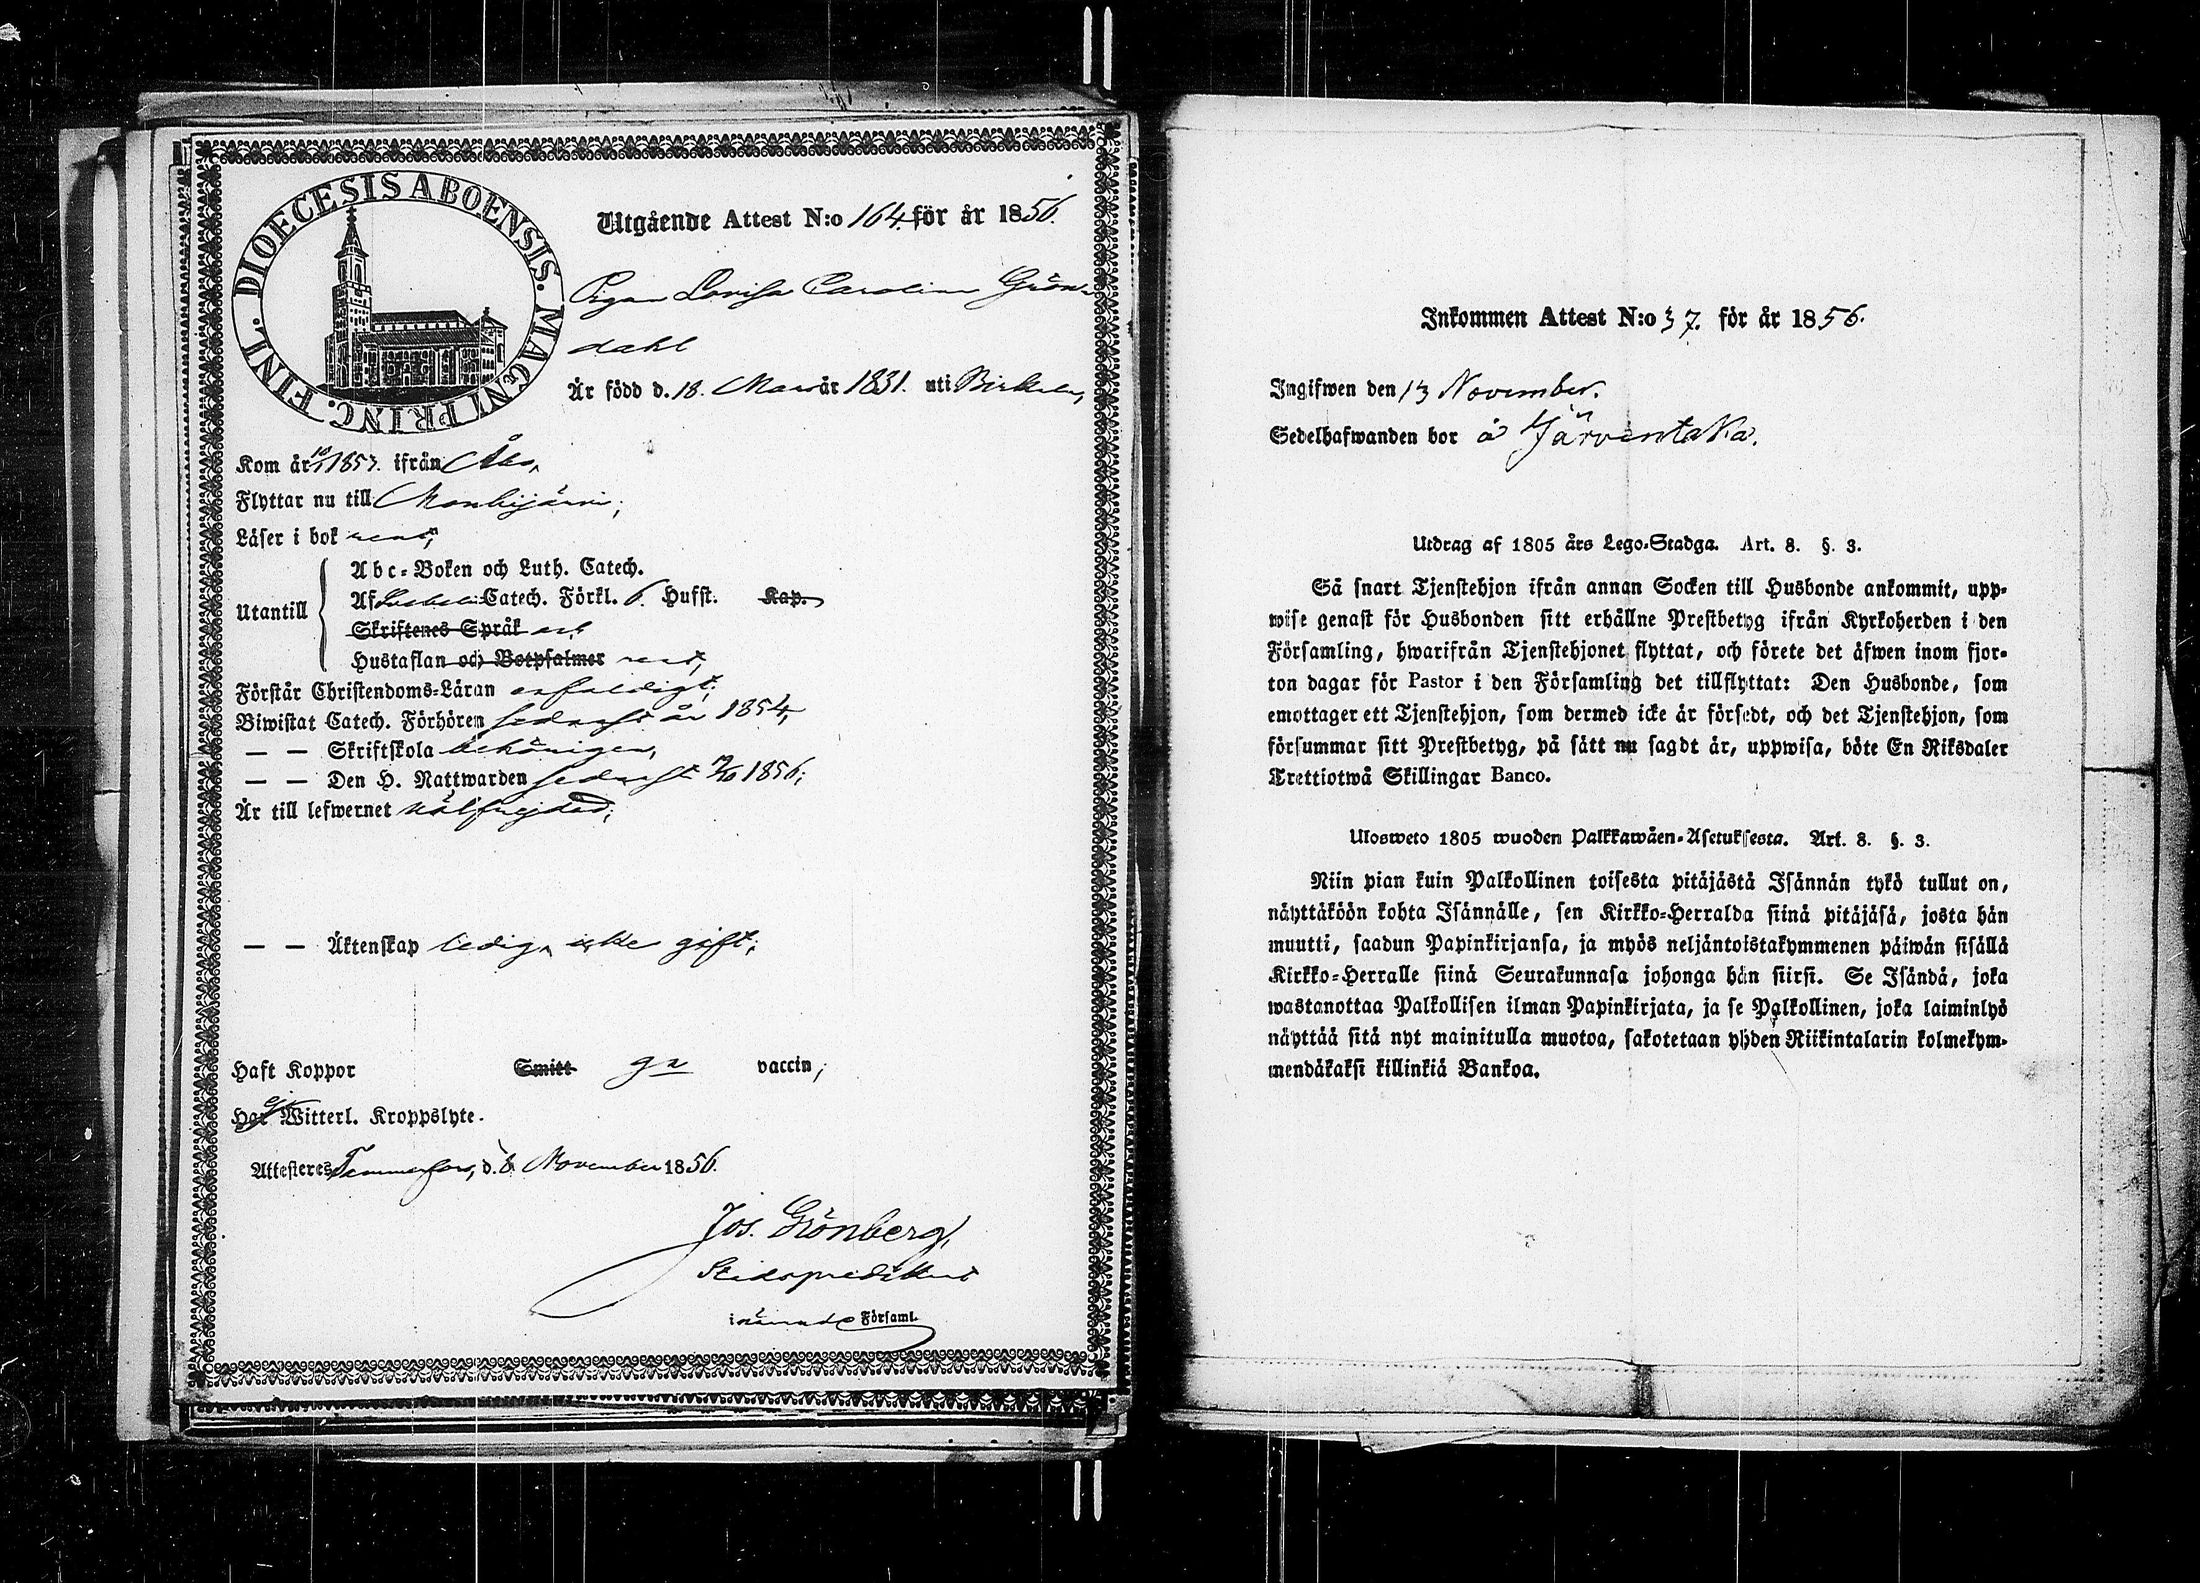 DIOECESIS ABOENSIS. MAGNI PRINC. FINL.
Utgående Attest N:o 164. för år 1856.
Pigan Lovisa Carolina Grön-
dahl
Är född d. 18. Mars år 1831. uti Birkala,
Kom år 1853. ifrån Åbo,
Flyttar nu till Mouhijärvi;
Läser i bok rent,
Utantill
Abc-Boken och Luth. Catech.
Af Svebelii Catech. Förkl. 6. Hufst. Kap.
Skriftenes Språk
Hustaflan och Botpsalmer rent,
Förstår Christendoms-Läran enfaldigt;
Biwistat Catech. Förhören sednast år 1854,
— — Skriftskola behörigen,
— — Den H. Nattwarden sednast 1856;
Är till lefwernet wälfrejdad;
— — Äktenskap ledig, icke gift;
Haft Koppor Smitt gn vaccin;
Har Witterl. Kroppslyte.
Attesteras Tammerfors, d. 8. November 1856.
Jos. Grönberg,
Stadspredikant
i nämnde Församl.
Inkommen Attest N:o 37. för år 1856.
Ingifwen den 13 November.
Sedelhafwanden bor å Järventaka.
Utdrag af 1805 års Lego-Stadga. Art. 8. §. 3.
Så snart Tjenstehjon ifrån annan Socken till Husbonde ankommit, upp-
wise genast för Husbonden sitt erhållne Prestbetyg ifrån Kyrkoherden i den
Församling, hwarifrån Tjenstehjonet flyttat, och förete det äfwen inom fjor-
ton dagar för Pastor i den Församling det tillflyttat: Den Husbonde, som
emottager ett Tjenstehjon, som dermed icke är försedt, och det Tjenstehjon, som
försummar sitt Prestbetyg, på sätt nu sagdt är, uppwisa, böte En Riksdaler
Trettiotwå Skillingar Banco.
Ulosweto 1805 wuoden Palkkawäen-Asetuksesta. Art. 8. §. 3.
Niin pian kuin Palkollinen toisesta pitäjästä Isännän tykö tullut on,
näyttäköön kohta Isännälle, sen Kirkko-Herralda siinä pitäjäsä, josta hän
muutti, saadun Papinkirjansa, ja myös neljäntoistakymmenen päiwän sisällä
Kirkko-Herralle siinä Seurakunnasa johonga hän siirsi. Se Isändä, joka
wastanottaa Palkollisen ilman Papinkirjata, ja se Palkollinen, joka laiminlyö
näyttää sitä nyt mainitulla muotoa, sakotetaan yhden Riikintalarin kolmekym-
mendäkaksi killinkiä Bankoa.